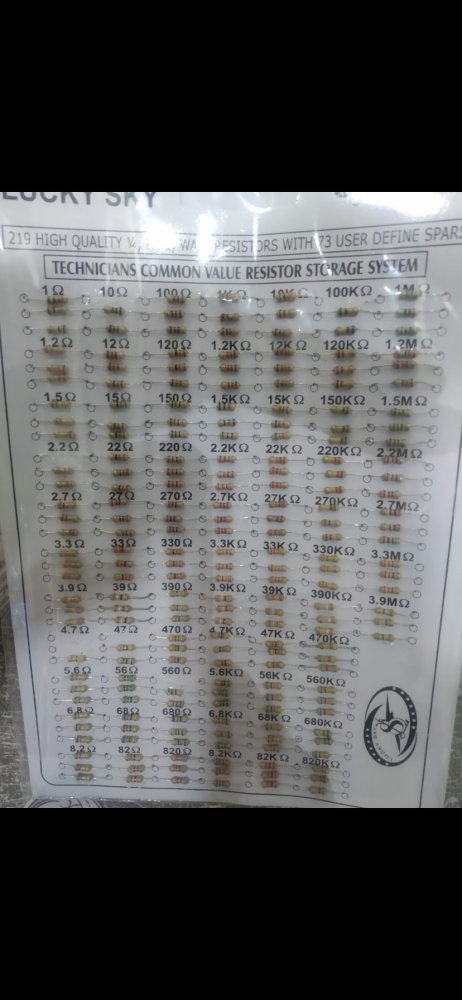 LUCKY SKY
219 HIGH QUALITY ¼, WATT RESISTORS WITH 73 USER DEFINE SPARS
TECHNICIANS COMMON VALUE RESISTOR STORAGE SYSTEM
1Ω 10Ω 100Ω 1KΩ 10KΩ 100KΩ 1MΩ
1.2Ω 12Ω 120Ω 1.2KΩ 12KΩ 120KΩ 1.2MΩ
1.5Ω 15Ω 150Ω 1.5KΩ 15KΩ 150KΩ 1.5MΩ
2.2Ω 22Ω 220Ω 2.2KΩ 22KΩ 220KΩ 2.2MΩ
2.7Ω 27Ω 270Ω 2.7KΩ 27KΩ 270KΩ 2.7MΩ
3.3Ω 33Ω 330Ω 3.3KΩ 33KΩ 330KΩ 3.3MΩ
3.9Ω 39Ω 390Ω 3.9KΩ 39KΩ 390KΩ 3.9MΩ
4.7Ω 47Ω 470Ω 4.7KΩ 47KΩ 470KΩ
5.6Ω 56Ω 560Ω 5.6KΩ 56KΩ 560KΩ
6.8Ω 68Ω 680Ω 6.8KΩ 68KΩ 680KΩ
8.2Ω 82Ω 820Ω 8.2KΩ 82KΩ 820KΩ